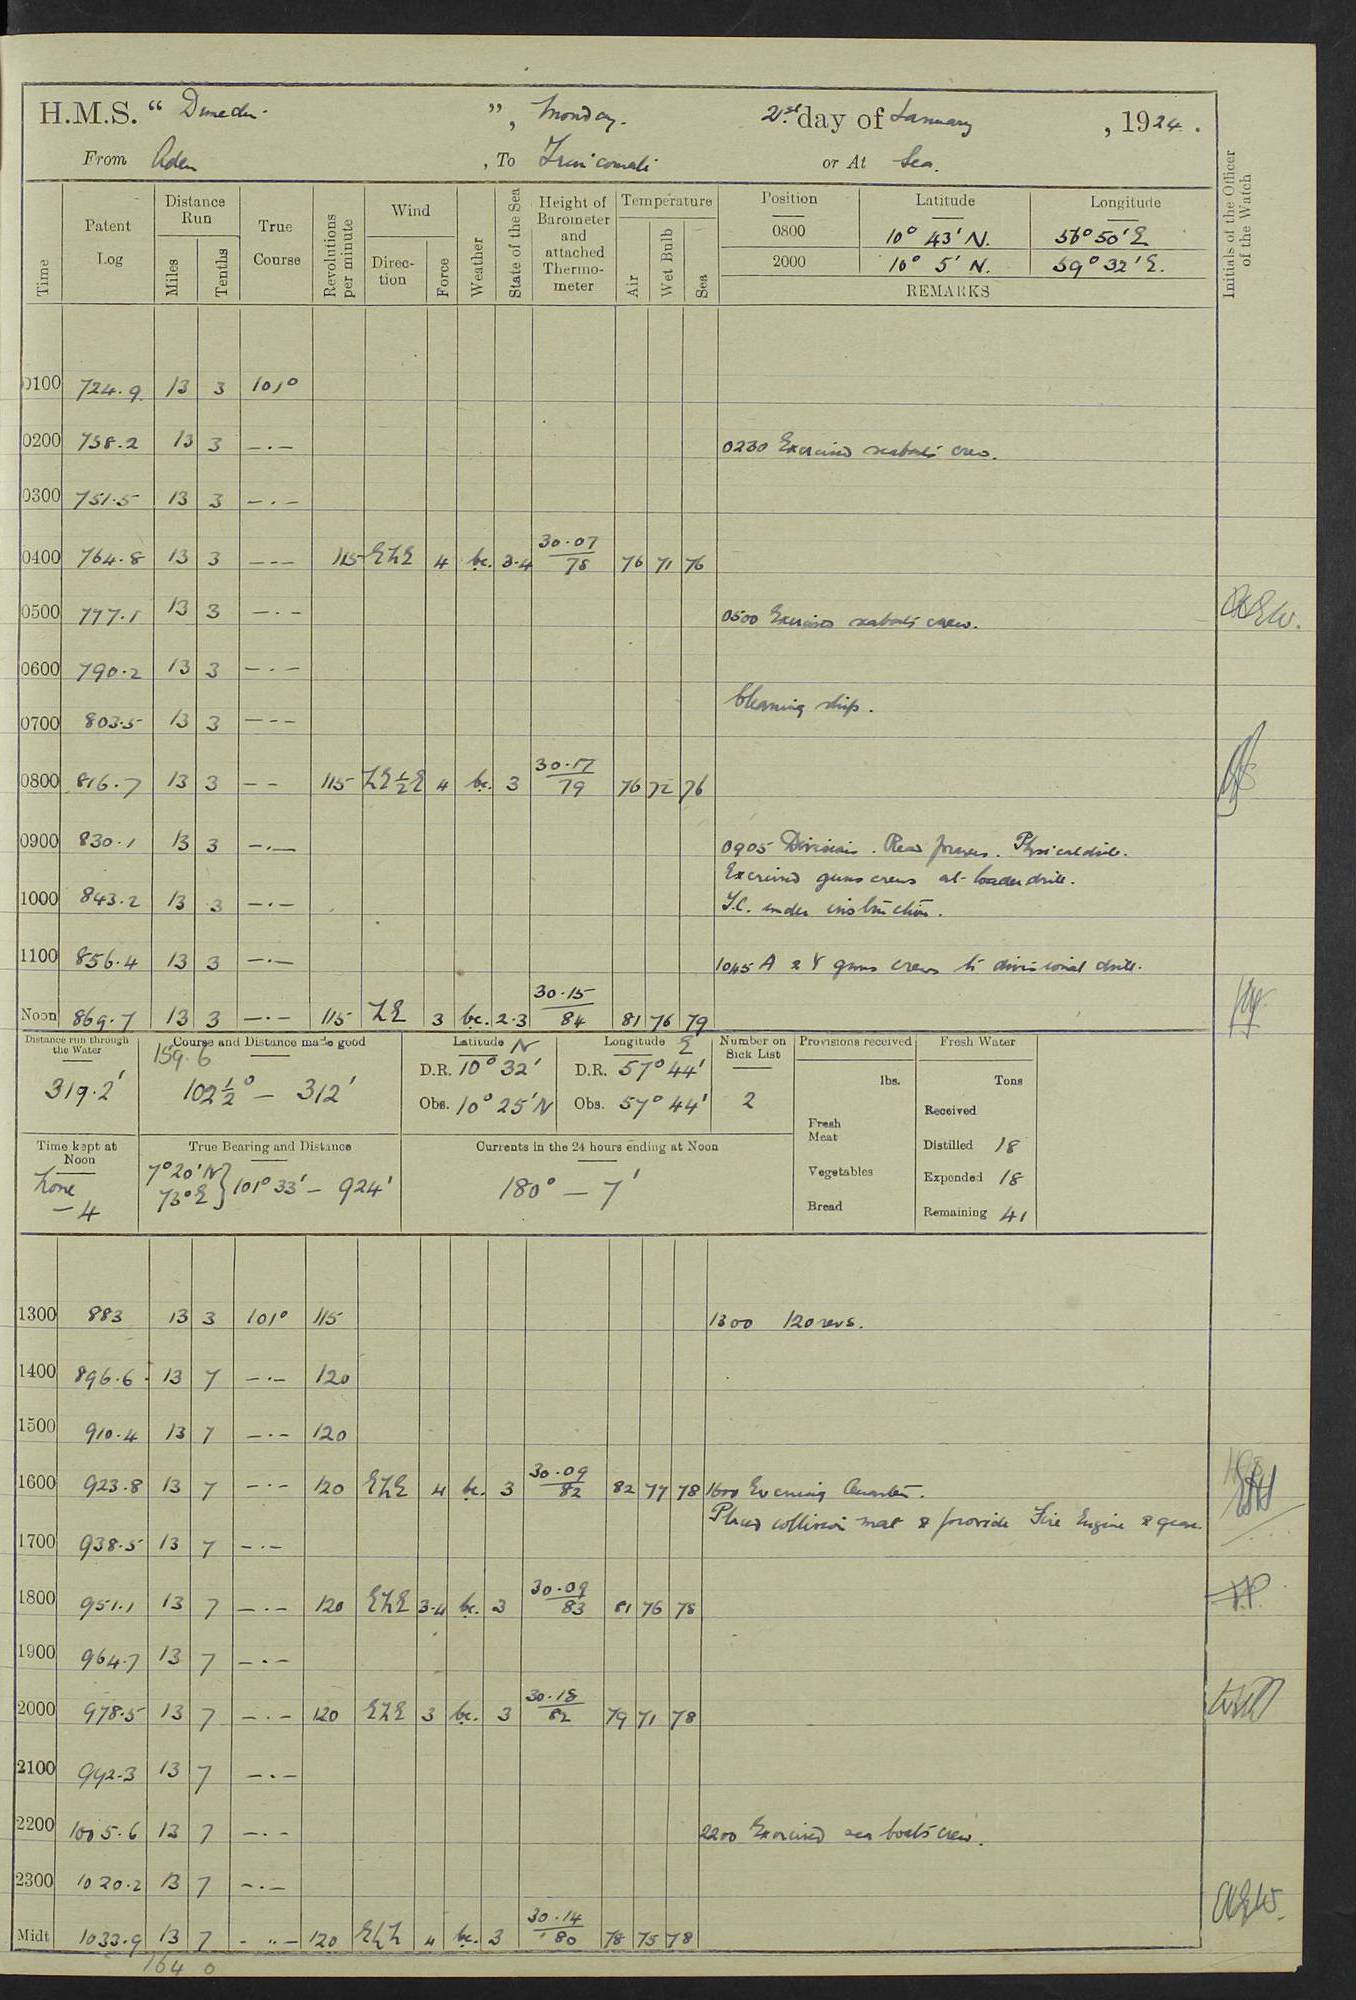 H.M.S. “ Dunedin ”, Monday. 21st day of January, 1924.
From Aden, To Trincomali or At Sea.
Time
Patent Log
Distance Run
Miles
Tenths
True Course
Revolutions per minute
Wind
Direction
Force
Weather
State of the Sea
Height of Barometer and attached Thermometer
Temperature
Air
Wet Bulb
Sea
Position Latitude Longitude
0800 10° 43' N. 56° 50' E
2000 10° 5' N. 59° 32' E.
REMARKS
Initials of the Officer of the Watch
0100 724.9 13 3 101°
0200 738.2 13 3 —.— 0230 Exercised seaboats crew.
0300 751.5 13 3 —.—
0400 764.8 13 3 —.— 115 ENE 4 bc. 3.4 30.07/78 76 71 76
0500 777.1 13 3 —.— 0500 Exercised seaboats crew.
A.E.W.
0600 790.2 13 3 —.—
Cleaning ship.
0700 803.5 13 3 ---
0800 816.7 13 3 -- 115 NE½E 4 bc. 3 30.17/79 76 72 76
0900 830.1 13 3 —.— 0905 Divisions. Read prayers. Physical drill.
Exercised guns crews at loader drill.
1000 843.2 13 3 —.— T.C. under instruction.
1100 856.4 13 3 —.— 1045 A & Y guns crews to divisional drill.
Noon 869.7 13 3 —.— 115 NE 3 bc. 2.3 30.15/84 81 76 79
Distance run through the Water
319.2'
159.6
Course and Distance made good
102½° — 312'
Latitude N
D.R. 10° 32'
Obs. 10° 25' N
Longitude E
D.R. 57° 44'
Obs. 57° 44'
Number on Sick List
2
Provisions received
lbs.
Fresh Meat
Vegetables
Bread
Fresh Water
Tons
Received
Distilled 18
Expended 18
Remaining 41
Time kept at Noon
Zone
— 4
True Bearing and Distance
7° 20' N
73° E } 101° 33' — 924'
Currents in the 24 hours ending at Noon
180° — 7'
1300 883 13 3 101° 115 1300 120 revs.
1400 896.6 13 7 —.— 120
1500 910.4 13 7 —.— 120
1600 923.8 13 7 —.— 120 ENE 4 bc. 3 30.09/82 82 77 78 1600 Evening Quarters.
Placed collision mat & provide Fire Engine & gear
1700 938.5 13 7 —.—
1800 951.1 13 7 —.— 120 ENE 3.4 bc. 3 30.09/83 81 76 78
1900 964.7 13 7 —.—
2000 978.5 13 7 —.— 120 ENE 3 bc. 3 30.18/82 79 71 78
2100 992.3 13 7 —.—
2200 1005.6 13 7 —.— 2200 Exercised sea boats crew.
2300 1020.2 13 7 —.—
A.E.W.
Midt 1033.9 13 7 -..— 120 4 bc. 3 30.14/80 78 75 78
164 0